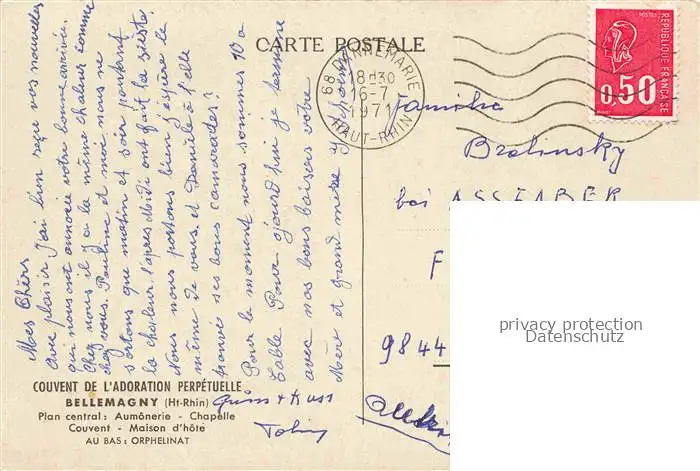 CARTE POSTALE
68 DANNEMARIE
18H30
16-7
1971
HAUT-RHIN
POSTES
REPUBLIQUE FRANÇAISE
0,50
Mes Chèrs
Avec plaisir J'ai bien reçu vos nouvelles
qui nous ont annoncé votre bonne arrivée.
Chez nous il y a la même chaleur comme
chez vous. Pauline et moi nous ne
sortons que matin et soir pendant
la chaleur l'après midi ont fait la sieste.
Nous nous portons bien j'éspère le
même de vous, et Danièle a t'elle
trouvé ses bons camarades?
Pour le moment nous sommes 10 a
table. Pour ajourd'hui je termine
avec nos bons baisers votre
Mère et grand mère
COUVENT DE L'ADORATION PERPÉTUELLE
BELLEMAGNY (Ht-Rhin)
Plan central: Aumônerie - Chapelle
Couvent - Maison d'hôte
AU BAS: ORPHELINAT
Familie
bei ASSFABER
F
9844
privacy protection
Datenschutz